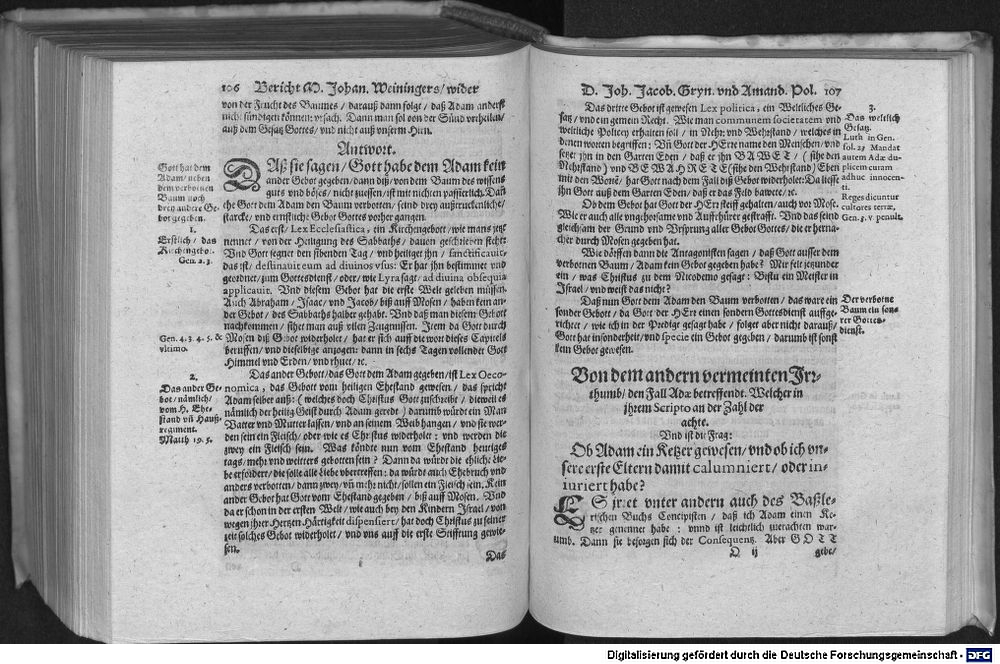 106 Bericht M. Johan. Weiningers/ wider
von der Frucht des Baumes / darauß dann folge / daß Adam anderst
nicht sündigen können: ursach. Dann man sol von der Sünd urtheilen/
auß dem Gesatz Gottes/ und nicht auß unserm Hirn.
Antwort.
Gott hat dem
Adam/ neben
dem verbotten
Baum noch
drey andere Ge-
bot gegeben.
DAß sie sagen/ Gott habe dem Adam kein
ander Gebot gegeben/ dann diß/ von dem Baum des wissens
guts und böses/ nicht zuessen/ ist mit nichten passierlich. Dañ
ehe Gott dem Adam den Baum verbotten/ seind drey außtruckenliche/
starcke/ und ernstliche Gebot Gottes vorher gangen.
1.
Erstlich/ das
Kirchengebot.
Gen. 2. 3.
Das erst/ Lex Ecclesiastica, ein Kirchengebott/ wie mans jetz
nennet/ von der Heiligung des Sabbaths/ davon geschrieben steht:
Und Gott segnet den sibenden Tag/ und heiliget jhn/ sanctificauit,
das ist/ destinauit eum ad diuinos vsus: Er hat jhn bestimmet und
geordnet/ zum Gottsdienst/ oder/ wie Lyra sagt/ ad diuina obsequia
applicauit. Und diesem Gebot hat die erste Welt geleben müssen.
Auch Abraham/ Isaac/ und Jacob/ biß auff Mosen/ haben kein an-
der Gebot/ des Sabbaths halber gehabt. Und daß man diesem Gebott
nachkommen/ sihet man auß vilen Zeugnissen. Item da Gott durch
Gen. 4. 3. 4. 5. &
vltimo.
Mosen diß Gebot widerholet/ hat er sich auff die wort dieses Capitels
beruffen/ und dieselbige anzogen: dann in sechs Tagen vollendet Gott
Himmel und Erden/ und rhuet/ etc.
2.
Das ander Ge-
bot/ nämlich/
vom H. Ehe-
stand uñ Hauß-
regiment.
Matth. 19. 5.
Das ander Gebott/ das Gott dem Adam gegeben/ ist Lex Oeco-
nomica, das Gebot vom heiligen Ehestand gewesen/ das spricht
Adam selber auß: ( welches doch Christus Gott zuschreibt/ dieweil es
nämlich der heilig Geist durch Adam geredt ) darumb würdt ein Man
Vatter und Mutter lassen/ und an seinem Weib hangen/ und sie wer-
den sein ein Fleisch/ oder wie es Christus widerholet: und werden die
zwey ein Fleisch sein. Was köndte nun vom Ehestand heutiges
tags/ mehr und weitters gebotten sein? Dann da würdt die ehliche Lie-
be erfordert/ die solle alle Liebe übertreffen: da würdt auch Ehebruch und
anders verbotten/ dann zwey/ uñ mehr nicht/ sollen ein Fleisch sein. Kein
ander Gebot hat Gott vom Ehestand gegeben/ biß auff Mosen. Und
da er schon in der ersten Welt/ wie auch bey den Kindern Israel/ von
wegen jhrer Hertzen Härtigkeit dispensiert/ hat doch Christus zu seiner
zeit solches Gebot widerholet/ und uns auff die erste Stifftung gewie-
sen.
Das
D. Joh. Jacob. Gryn. vnd Amand. Pol. 107
Das dritte Gebot ist gewesen Lex politica, ein Weltliches Ge-
satz/ und ein gemein Recht. Wie man communem societatem und
weltliche Policey erhalten soll/ in Nehr: und Wehrstand/ welches in
denen worten begriffen: Uñ Gott der HErr name den Menschen/ und
setzet jhn in den Garten Eden/ daß er jhn BAWET/ ( sihe den
Nehrstand ) und BEWAHRETE ( sihe den Wehrstand ) Eben
mit den Worten/ hat Gott nach dem Fall diß Gebot widerholet: Da liesse
jhn Gott auß dem Garten Eden/ daß er das Feld bawete/ etc.
3.
Das weltlich
Gesatz.
Luth. in Gen.
fol. 23 Mandat
autem Adæ du-
plicem curam
adhuc innocen-
ti.
Reges dicuntur
cultores terræ,
Gen. 3. v. penult.
Ob dem Gebot hat Gott der HErr steiff gehalten/ auch vor Mose.
Wie er auch alle ungehorsame und Auffrhürer gestrafft. Und das seind
gleichsam der Grund und Ursprung aller Gebot Gottes/ die er herna-
cher durch Mosen gegeben hat.
Wie dörffen dann die Antagonisten sagen/ daß Gott ausser dem
verbottnen Baum/ Adam kein Gebot gegeben habe? Mir felt jetzunder
ein/ was Christus zu dem Nicodemo gesagt: Bistu ein Meister in
Israel/ und weist das nicht?
Daß nun Gott dem Adam den Baum verbotten/ das ware ein
sonder Gebott/ da Gott der HErr einen sondern Gottesdienst auffge-
richtet/ wie ich in der Predige gesagt habe/ folget aber nicht darauß/
Gott hat insonderheit/ und specie ein Gebot gegeben/ darumb ist sonst
kein Gebot gewesen.
Der verbotne
Baum ein son-
rer Gottes-
dienst.
Von dem andern vermeinten Irr-
thumb/ den Fall Adæ betreffendt. Welcher in
jhrem Scripto an der Zahl der
achte.
Und ist die Frag:
Ob Adam ein Ketzer gewesen/ und ob ich un-
sere erste Eltern damit calumniert/ oder in-
iuriert habe?
ES jrret unter andern auch des Baßle-
rischen Buchs Concipisten/ daß ich Adam einen Ke-
tzer genennet habe: unnd ist leichtlich zuerachten war-
umb. Dann sie besorgen sich der Consequentz. Aber GOTT
O ij
gebe/
Digitalisierung gefördert durch die Deutsche Forschungsgemeinschaft - DFG